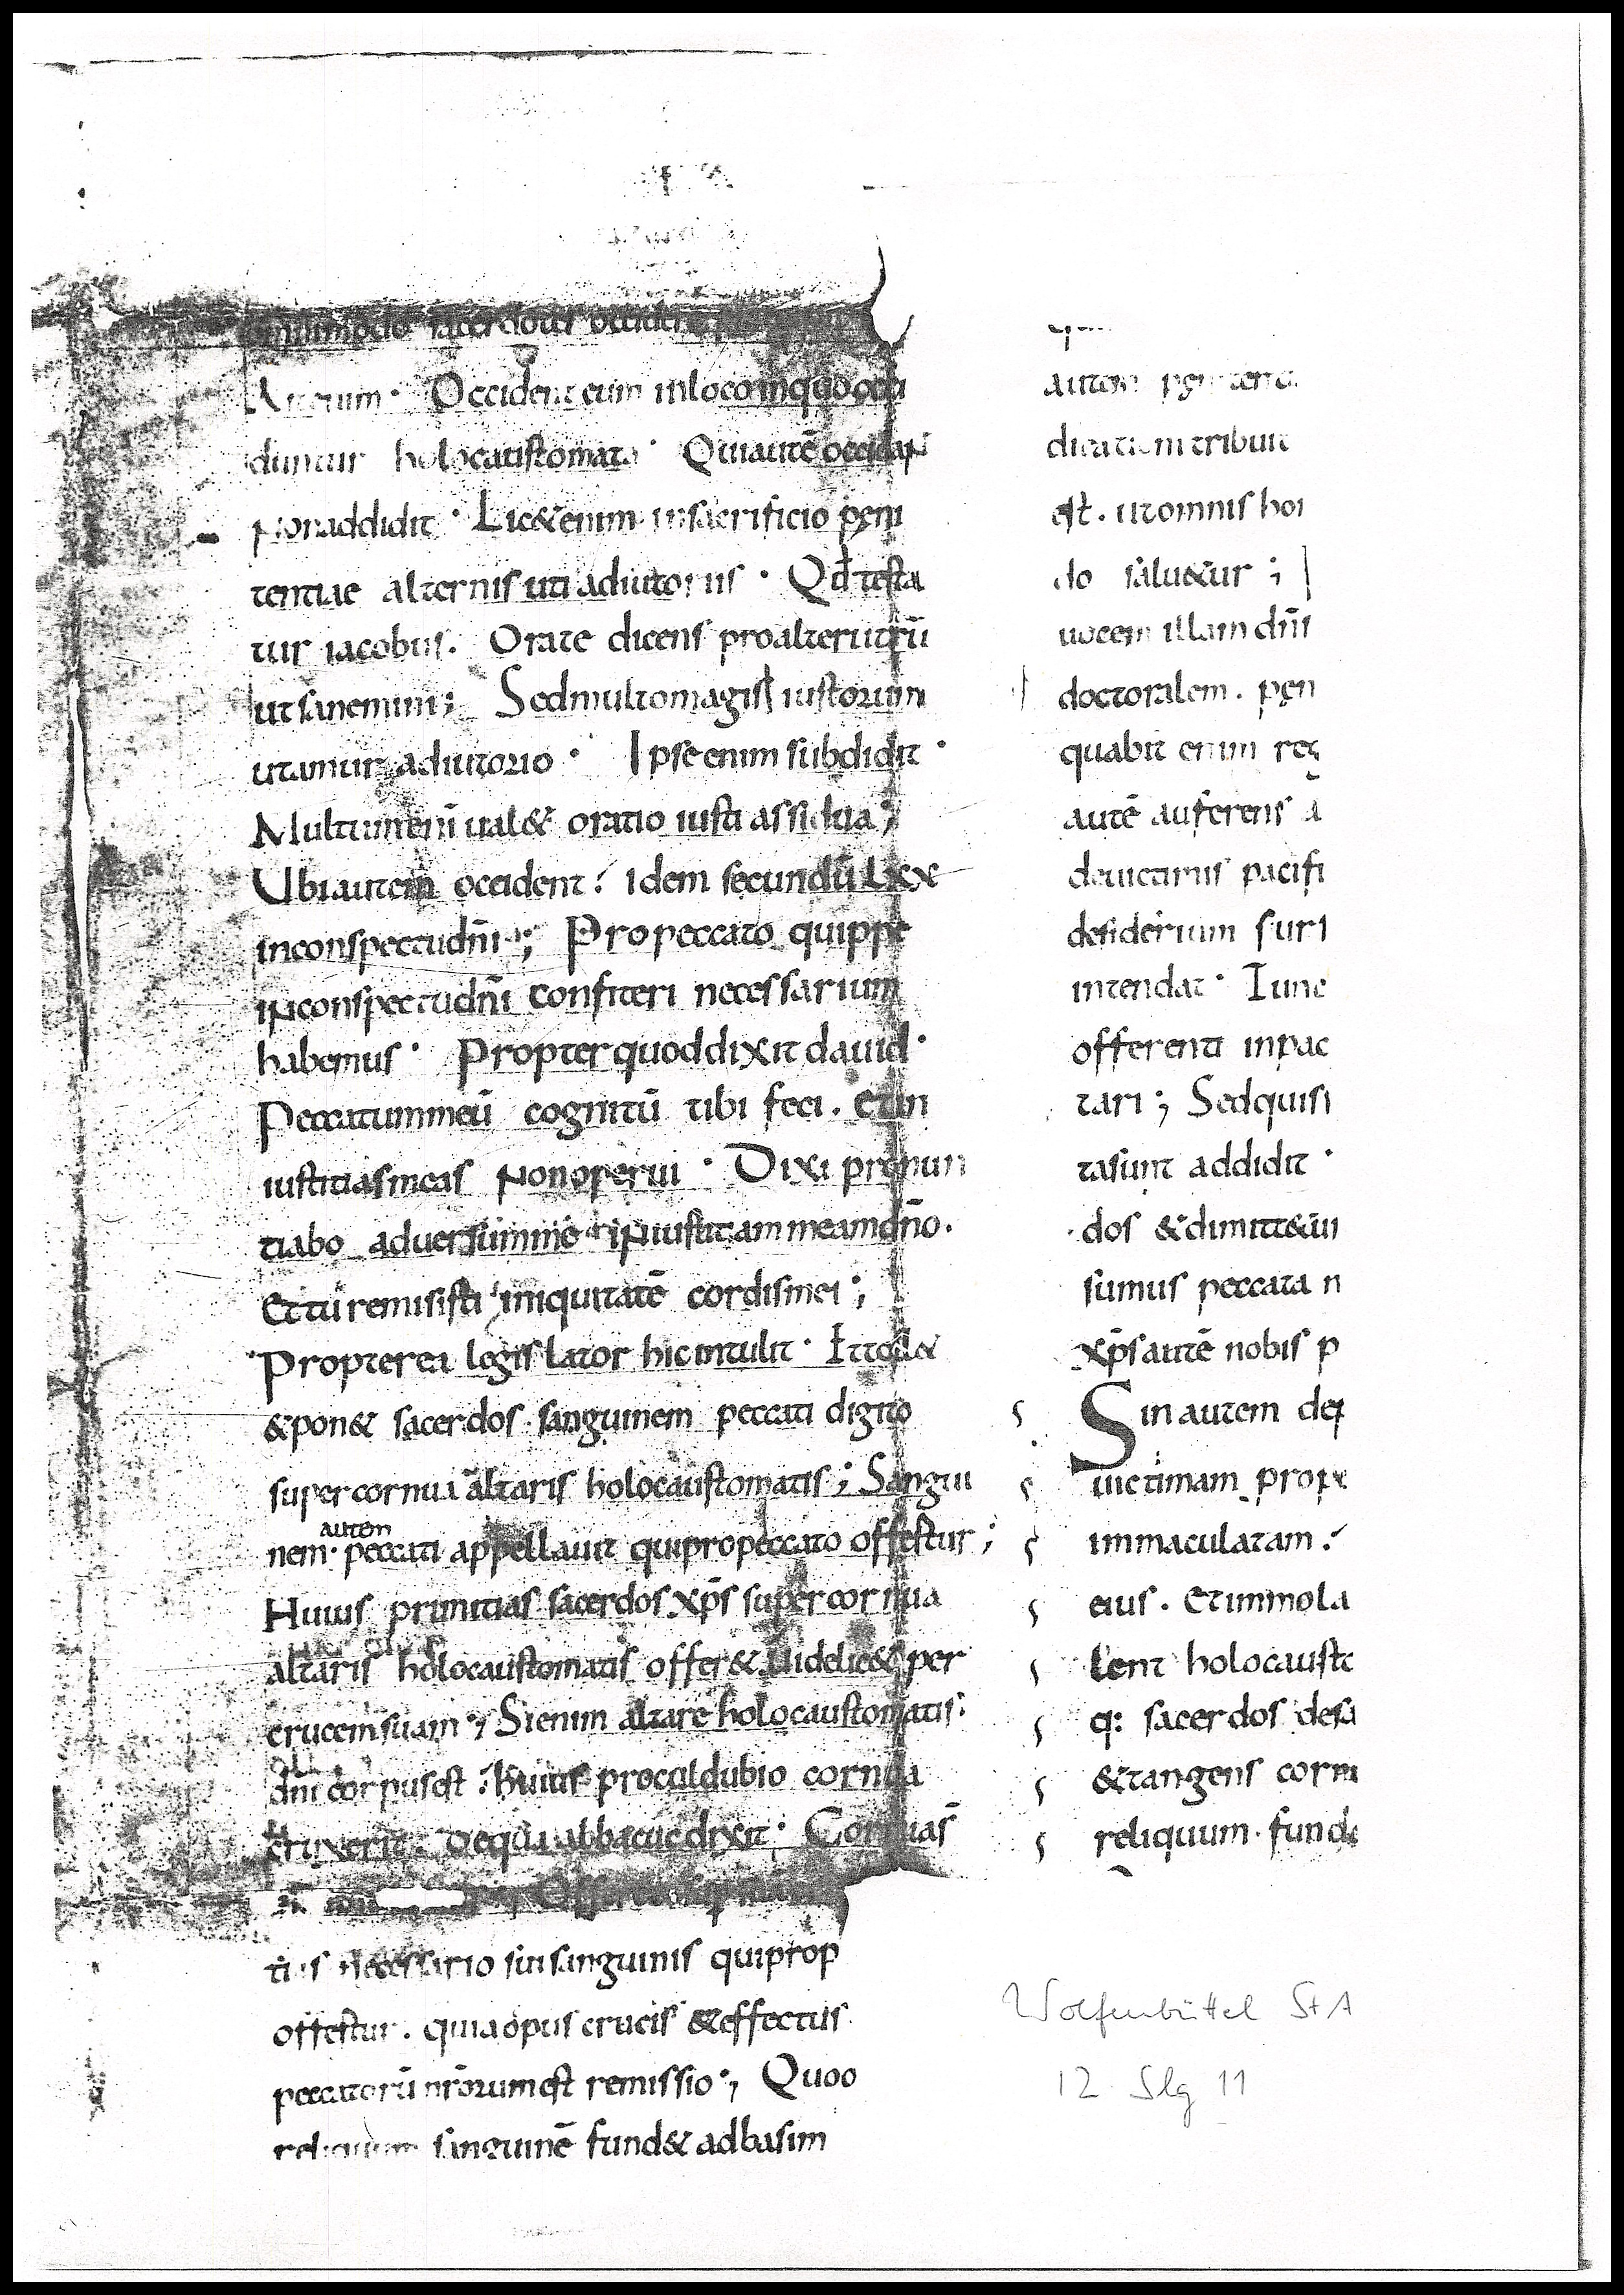 sacerdotes occidere
Occident eum inloco inquo occi
duntur holocaustomata · Quiautē occidat
non addidit · Lic&enim insacrificio pęni
tentiae alternis uti adiutoriis · Qđ testa
tur iacobus. Orate dicens proalterutrū
utsanemini; Sedmultomagis iustorum
utamur adiutorio · Ipse enim subdidit ·
Multumeni ual& oratio iusti assidua;
Ubiautem occident? idem secundū lxx
inconspectudn̄i; Propeccato quippe
inconspectudn̄i confiteri necessarium
habemus · Propter quoddixit dauid ·
Peccatummeū cognitū tibi feci. Etin
iustitiasmeas non operui · Dixi pronun
tiabo aduersumme iniustitiam meamdn̄o.
Ettu remisisti iniquitatē cordismei;
Propterea legislator hic intulit · Ettoll&
&pon& sacerdos sanguinem peccati digito
supercornua altaris holocaustomatis; Sangui
nem · autem peccati appellauit quipropeccato offertur;
Huius primitias sacerdos xp̄s super cornua
altaris holocaustomatis offer& uidelic& per
crucemsuam; Sienim altare holocaustomatis
dn̄i corpusest · huius proculdubio cornua
cruxerit. Dequa abbacuc dixit · Cornuas̄
tius necessario sui sanguinis quiprop
offertur. quia opus crucis & effectus
peccatorū nr̄orum est remissio; Quod
reliquum sanguinē fund& adbasim
autem penitentia
dicatium tribuit
est. utomnis hoi
do salu&ur;
uocem illam dn̄i
doctoralem. pęn
quabit enim reg
autē auferens a
deuictimis pacifi
desiderium suri
intendat · Tunc
offerenti inpac
tari; Sedquisi
tasunt addidit ·
dos &dimitt&ui
sumus peccata n
xp̄s autē nobis p
Sin autem dep
uictimam prope
immaculatam.
eius. Etimmola
lent holocausto
q: sacerdos desa
&tangens cornu
reliquum · funde
Wolfenbüttel StA
12 Slg 11